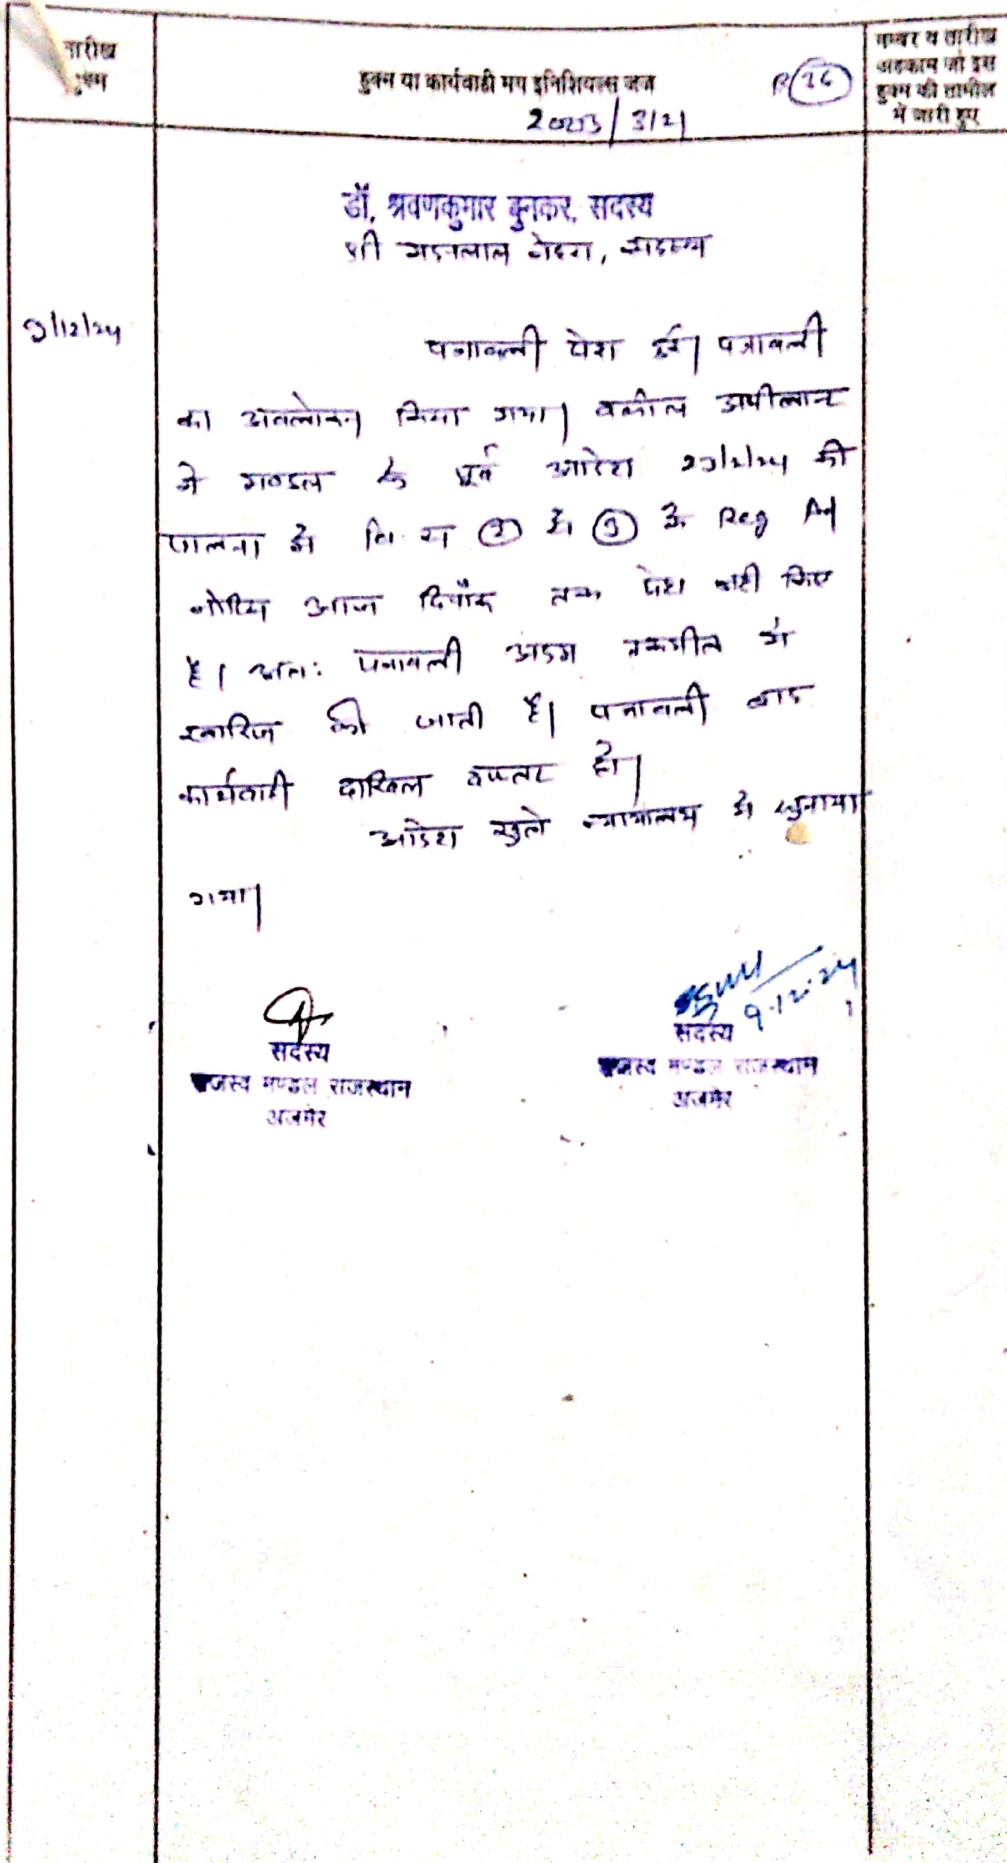 तारीख
हुक्म
हुक्म या कार्यवाही मय इनिशियल्स जज
नम्बर व तारीख
अहकाम जो इस
हुक्म की तामील
में जारी हुए
36
/3/21
डॉ. श्रवणकुमार बुनकर, सदस्य
श्री मदनलाल नेहरा, सदस्य
9/12/24
पत्रावली पेश हुई। पत्रावली
का अवलोकन किया गया। वकील अपीलान्ट
ने मण्डल के पूर्व आदेश की
पालना में ② से ③ के Reg Ad
नोटिस आज दिनाँक तक पेश नहीं किए
है। अतः पत्रावली अदम तकमील में
खारिज की जाती है। पत्रावली बाद
कार्यवाही दाखिल दफ्तर हो।
आदेश खुले न्यायालय में सुनाया
गया।
9.12.24
सदस्य
राजस्व मण्डल राजस्थान
अजमेर
सदस्य
राजस्व मण्डल राजस्थान
अजमेर